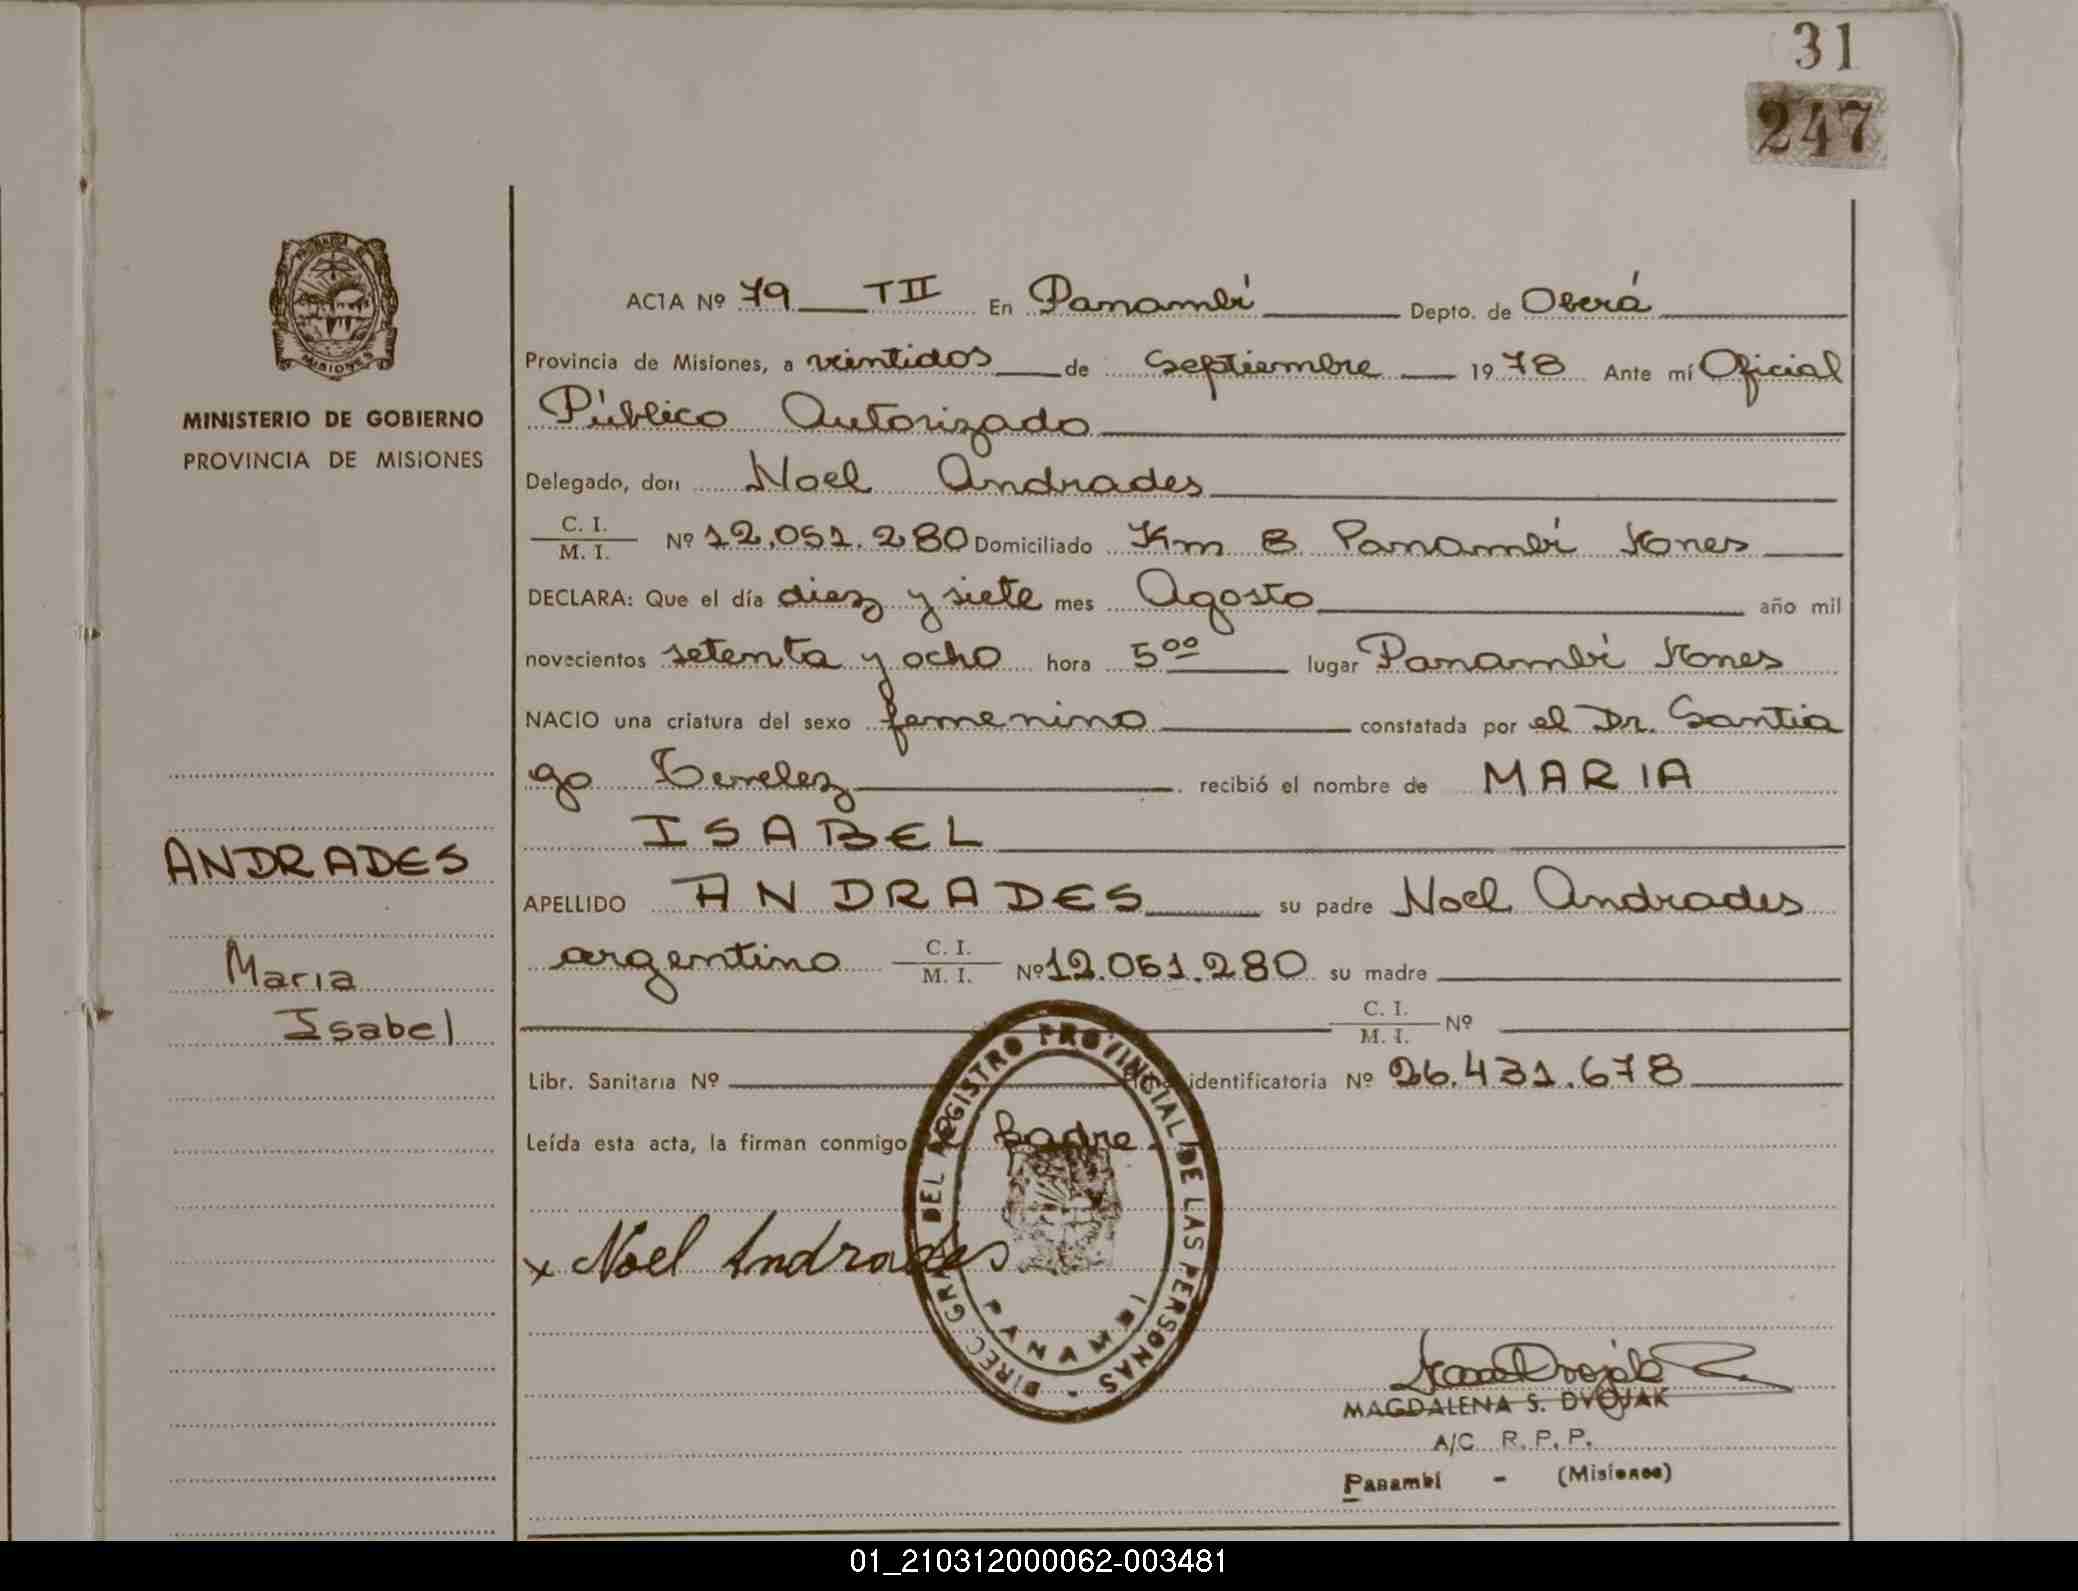 31
247
MINISTERIO DE GOBIERNO
PROVINCIA DE MISIONES
ANDRADES
Maria
Isabel
ACTA Nº 79 TII En Panambí Depto. de Oberá
Provincia de Misiones, a veintidos de Septiembre 1978 Ante mí Oficial
Público Autorizado
Delegado, don Noel Andrades
C. I.
M. I. Nº 12.051.280 Domiciliado Km 8 Panambí
DECLARA: Que el día diez y siete mes Agosto año mil
novecientos setenta y ocho hora 5⁰⁰ lugar Panambí
NACIO una criatura del sexo femenino constatada por el Dr. Santia
go recibió el nombre de MARIA
ISABEL
APELLIDO ANDRADES su padre Noel Andrades
argentino C. I.
M. I. Nº 12.051.280 su madre
C. I.
M. I. Nº
Libr. Sanitaria Nº identificatoria Nº 26.431.678
Leída esta acta, la firman conmigo padre.
x Noel Andrades
DIREC. GRAL DEL REGISTRO PROVINCIAL DE LAS PERSONAS -
PANAMBI
MAGDALENA S. DVOJAK
A/C R. P. P.
Panambí - (Misiones)
01_210312000062-003481